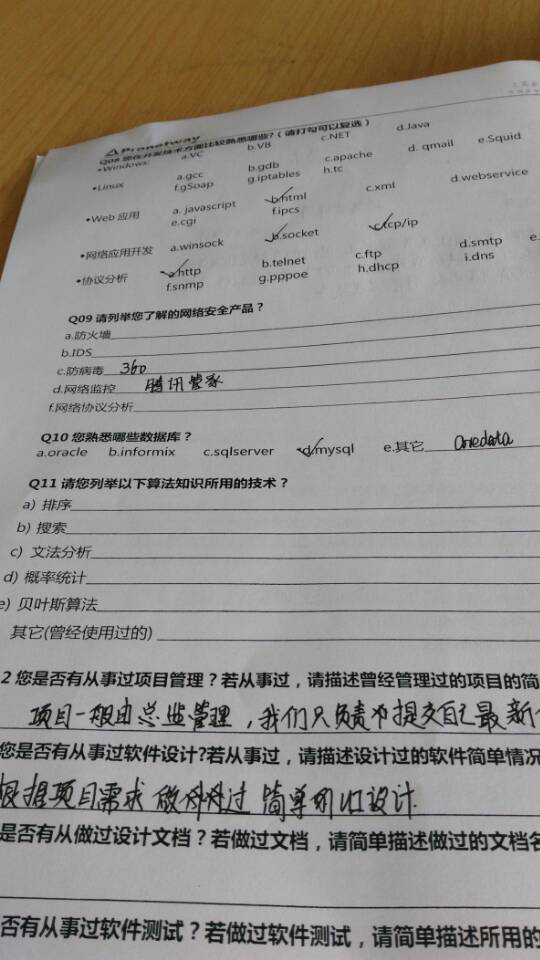 Pronetway
Q08 您在开发技术方面比较熟悉哪些?(请打勾可以复选)
•Windows: a.VC b.VB c.NET d.Java
•Linux a.gcc b.gdb c.apache d. qmail e.Squid
f.gSoap g.iptables h.tc
•Web 应用 a. javascript b.html c.xml d.webservice
e.cgi f.ipcs
•网络应用开发 a.winsock b.socket c.tcp/ip
•协议分析 a.http b.telnet c.ftp d.smtp e.
f.snmp g.pppoe h.dhcp i.dns
Q09 请列举您了解的网络安全产品?
a.防火墙
b.IDS
c.防病毒 360
d.网络监控 腾讯管家
f.网络协议分析
Q10 您熟悉哪些数据库?
a.oracle b.informix c.sqlserver d.mysql e.其它 onedata
Q11 请您列举以下算法知识所用的技术?
a) 排序
b) 搜索
c) 文法分析
d) 概率统计
e) 贝叶斯算法
其它(曾经使用过的)
2 您是否有从事过项目管理?若从事过,请描述曾经管理过的项目的简
项目一般由总监管理,我们只负责 提交自己最新
您是否有从事过软件设计?若从事过,请描述设计过的软件简单情况
根据项目需求 做 过 简单的UI设计.
是否有从做过设计文档?若做过文档,请简单描述做过的文档名
否有从事过软件测试?若做过软件测试,请简单描述所用的